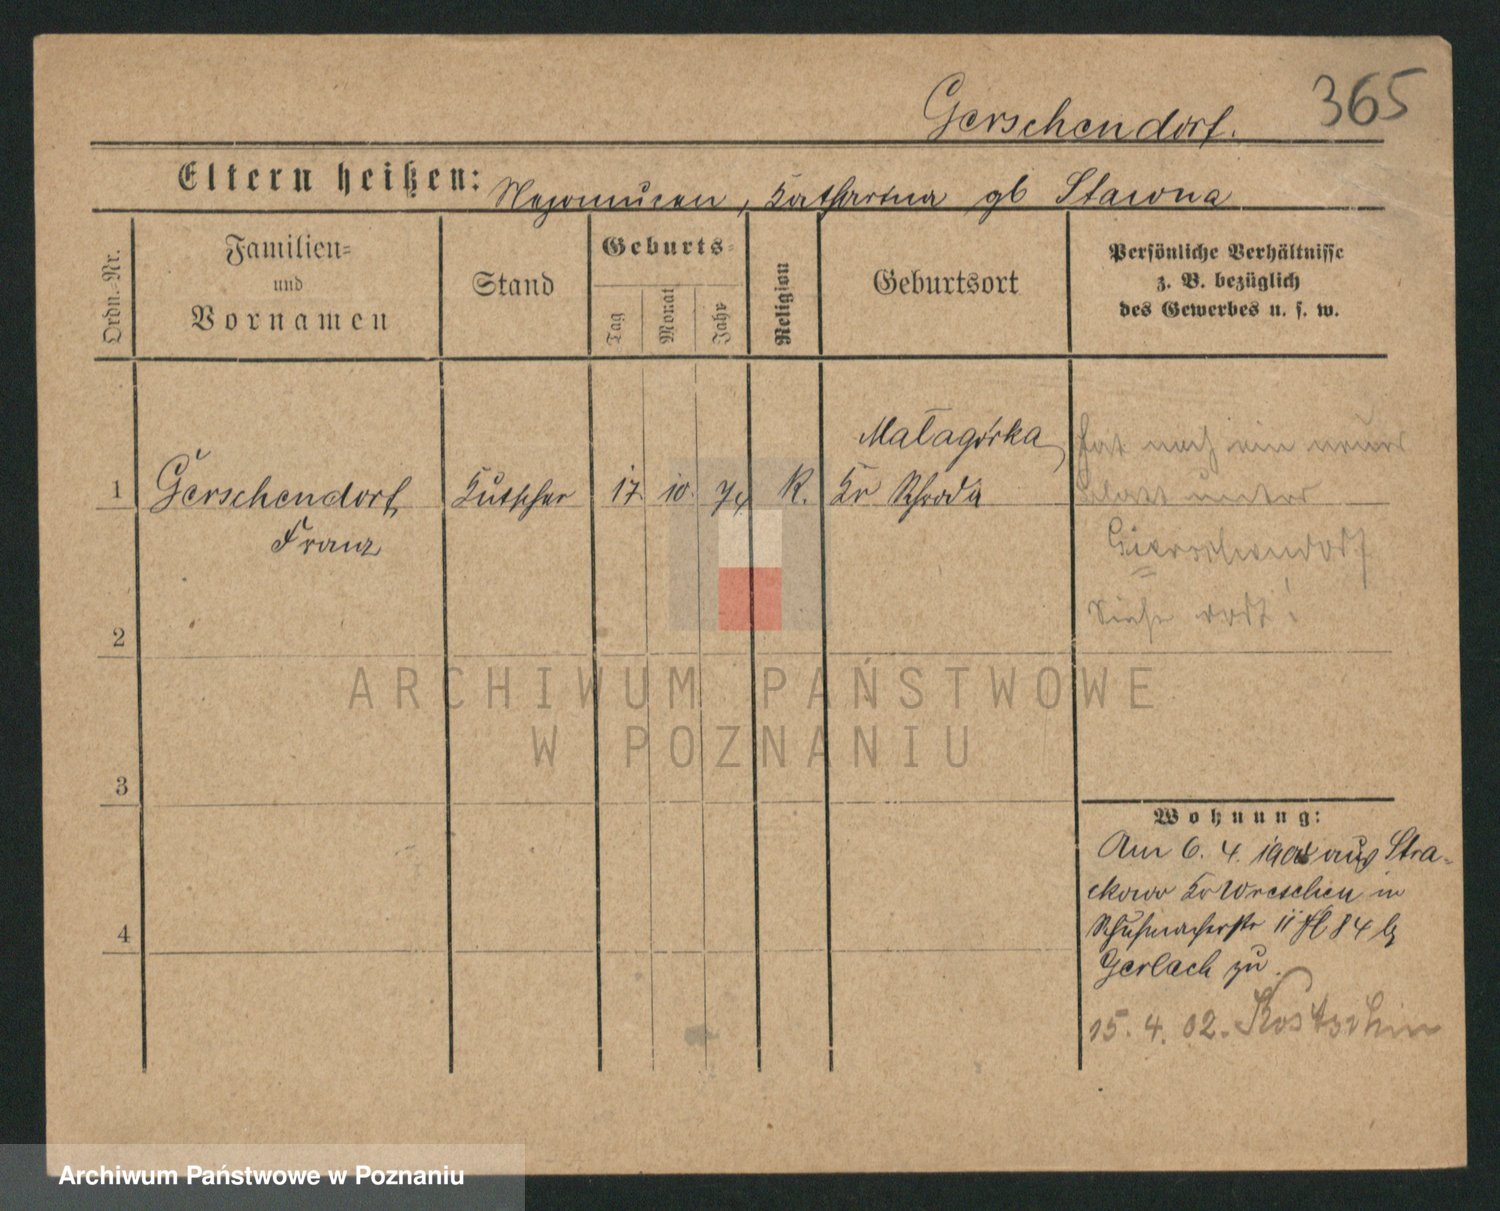 365
Gerschendorf.
Eltern heißen: Nepomucen, Katharina gb Stawna
Ordn.-Nr.
Familien-
und
Vornamen
Stand
Geburts-
Tag
Monat
Jahr
Religion
Geburtsort
Persönliche Verhältnisse
z. B. bezüglich
des Gewerbes u. s. w.
1
Gerschendorf
Franz
Kutscher
17.
10.
74
K.
Małagórka
Kr Schroda
hat noch ein neues
Blatt unter
Gierschendorf
Siehe dort!
2
3
4
Wohnung:
Am 6. 4. 190 aus Stra-
ckowo Kr Wreschen in
Schuhmacherstr 11 H 84 b
Gerlach zu.
15. 4. 02. Kostschin
ARCHIWUM PAŃSTWOWE
W POZNANIU
Archiwum Państwowe w Poznaniu